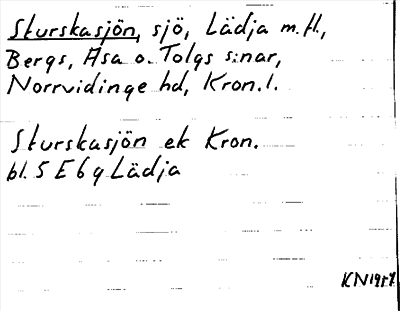 Sturskasjön, sjö, Lädja m.fl.,
Bergs, Asa o. Tolgs s:nar,
Norrvidinge hd, Kron.l.
Sturskasjön ek Kron.
bl. 5 E 6 g Lädja